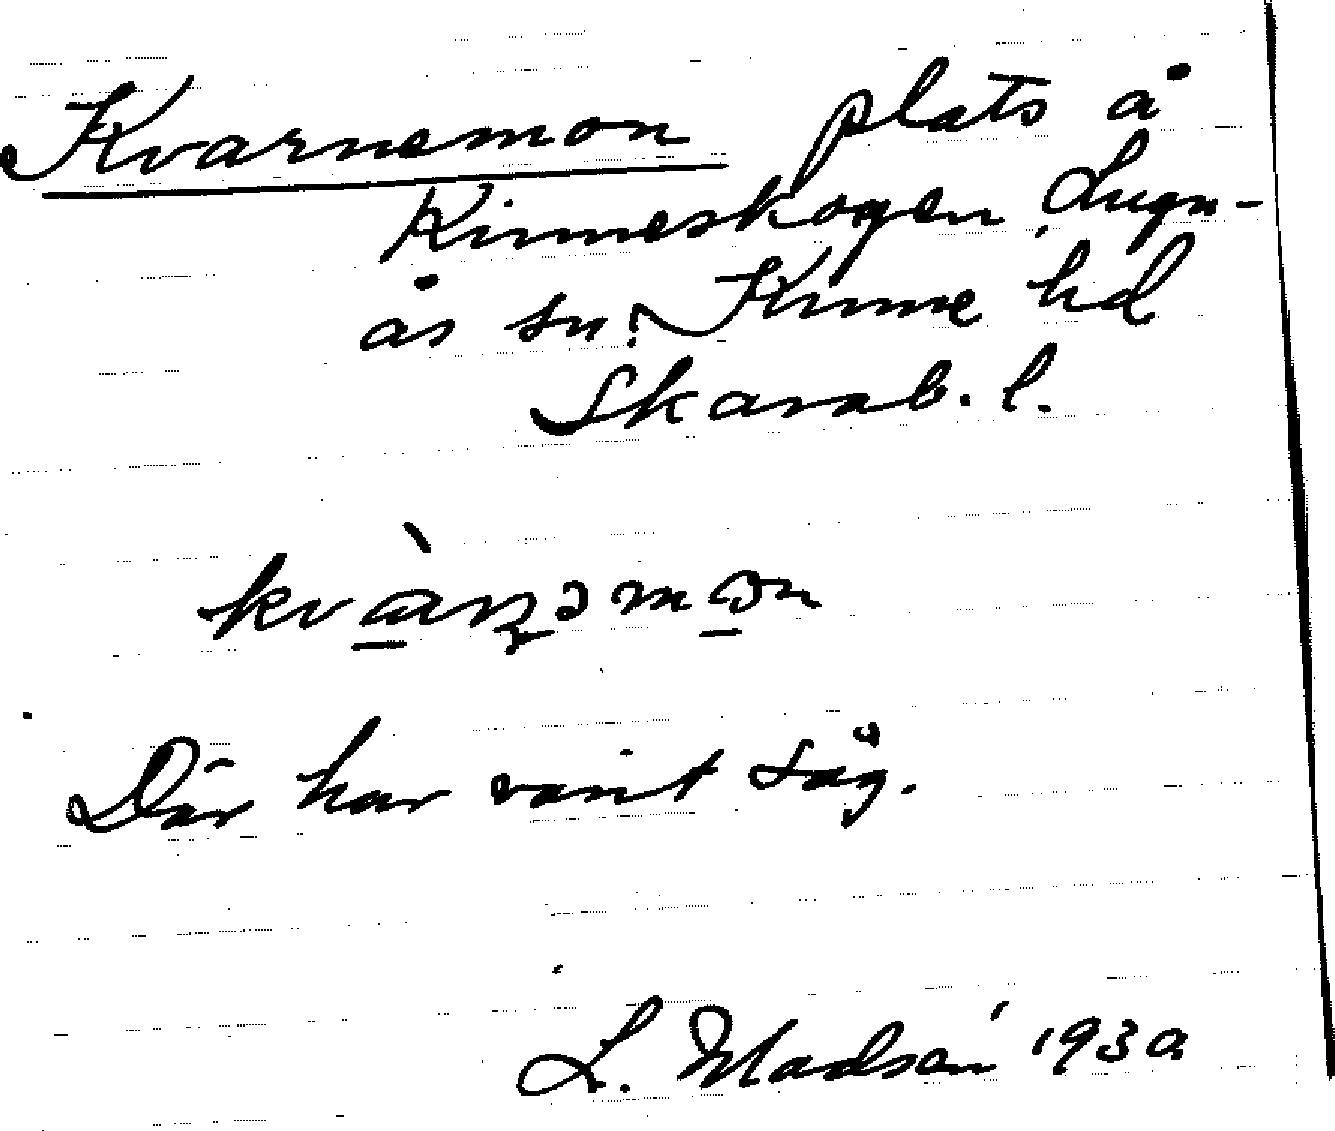 Kvarnemon plats å
Kinneskogen, Lugn-
ås sn, Kinne hd
Skarab. l.
kvàrṇəmɷn
Där har varit såg.
L. Madsén 1930